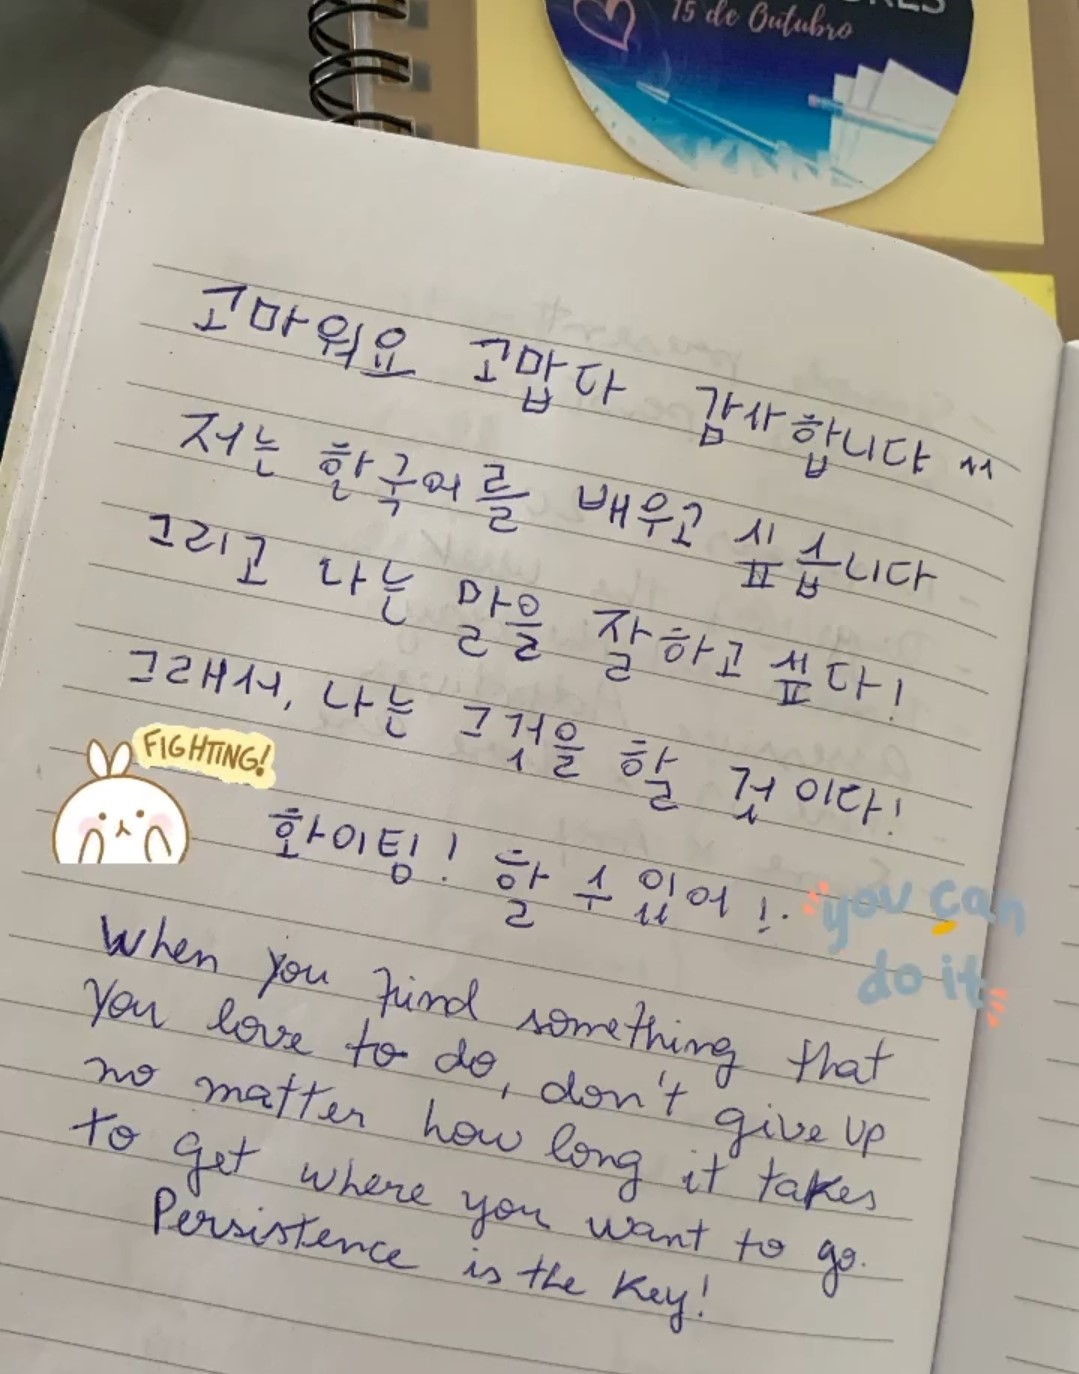 15 de Outubro
고마워요 고맙다 감사합니다
저는 한국어를 배우고 싶습니다
그리고 나는 말을 잘하고 싶다!
그래서, 나는 그것을 할 것이다!
FIGHTING!
화이팅! 할 수 있어!
you can
do it
When you find something that
you love to do, don't give up
no matter how long it takes
to get where you want to go.
Persistence is the key!